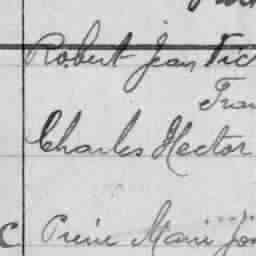 Robert Jean Vic
Fran
Charles Hector
C Pierre Marie Jos